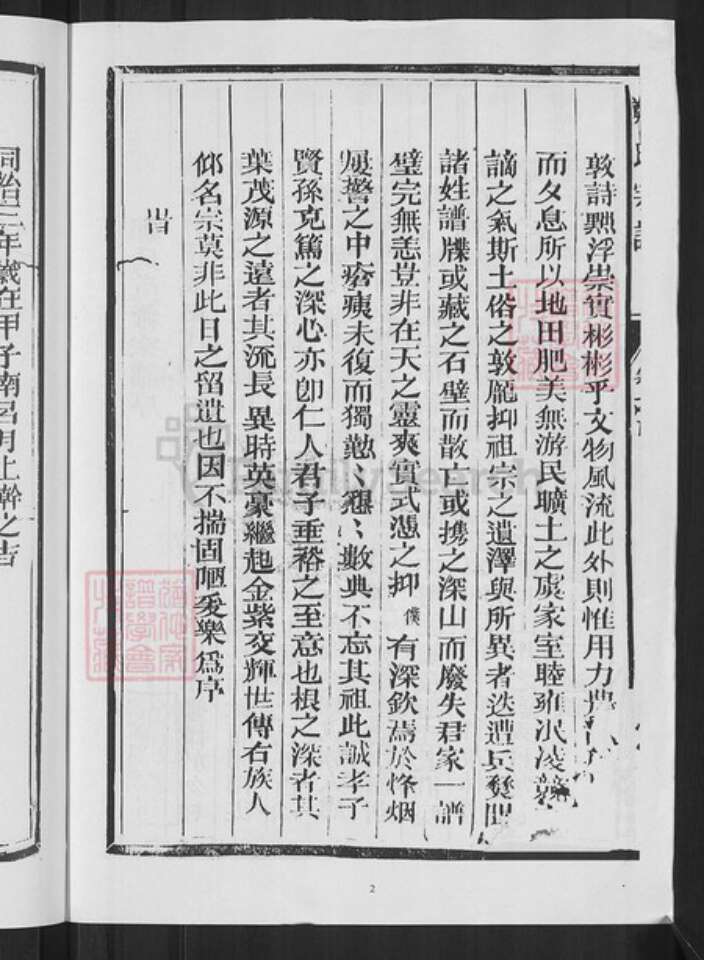 敦詩黜浮崇實彬彬乎文物風流此外則惟用力
而夕息所以地田肥美無游民曠土之虞家室睦雍泯凌
謫之氣斯土俗之敦龐抑祖宗之遺澤與所異者迭遭兵燹閭
諸姓譜牒或藏之石壁而散亡或携之深山而廢失君家一譜
璧完無恙豈非在天之靈爽實式憑之抑僕有深欽焉於烽烟
屢警之中瘡痍未復而獨懃〻懇〻數典不忘其祖此誠孝子
賢孫克篤之深心亦卽仁人君子垂裕之至意也根之深者其
葉茂源之遠者其流長異時英豪繼起金紫交輝世傳右族人
仰名宗莫非此日之留遺也因不揣固陋爰樂爲序
旹
同治三年歲在甲子南呂月上澣之吉
氏宗譜
2